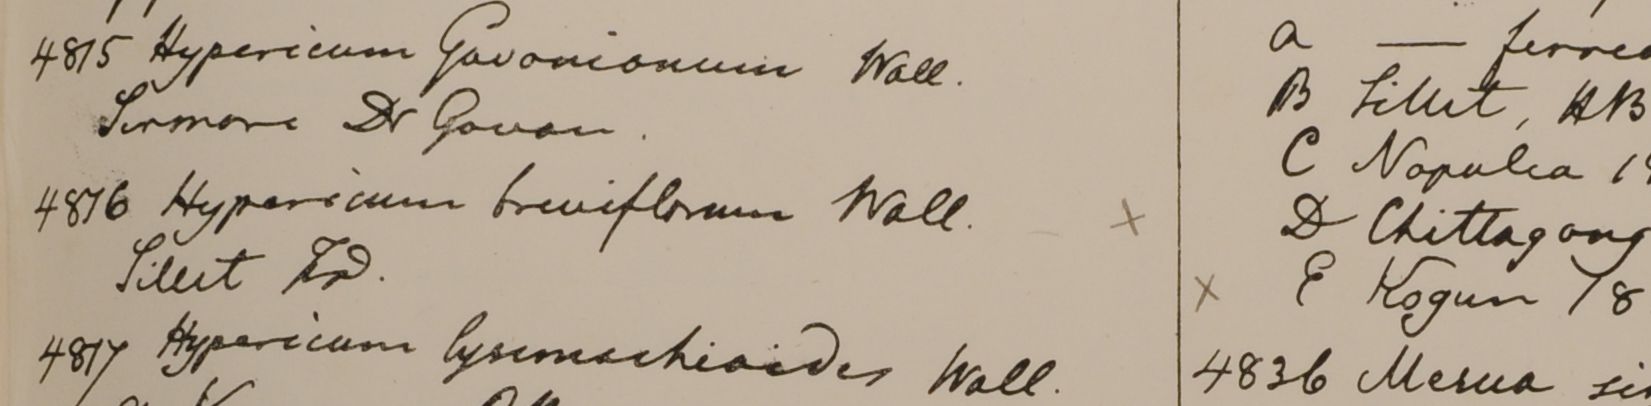 4815 Hypericum Govonianum Wall.
Sirmore Dr Govan.
4816 Hypericum breviflorum Wall. x
Sillet FD.
4817 Hypericum lysimachioides Wall.
a — ferrea
B Sillet, HB
C Napulea
D Chittagong
x E Kogun 18
4836 Mesua